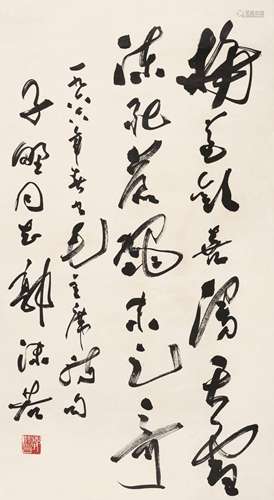 梅花欢喜漫天雪
冻死苍蝇未足奇
一九六六年春书毛主席诗句
子野同志 郭沫若